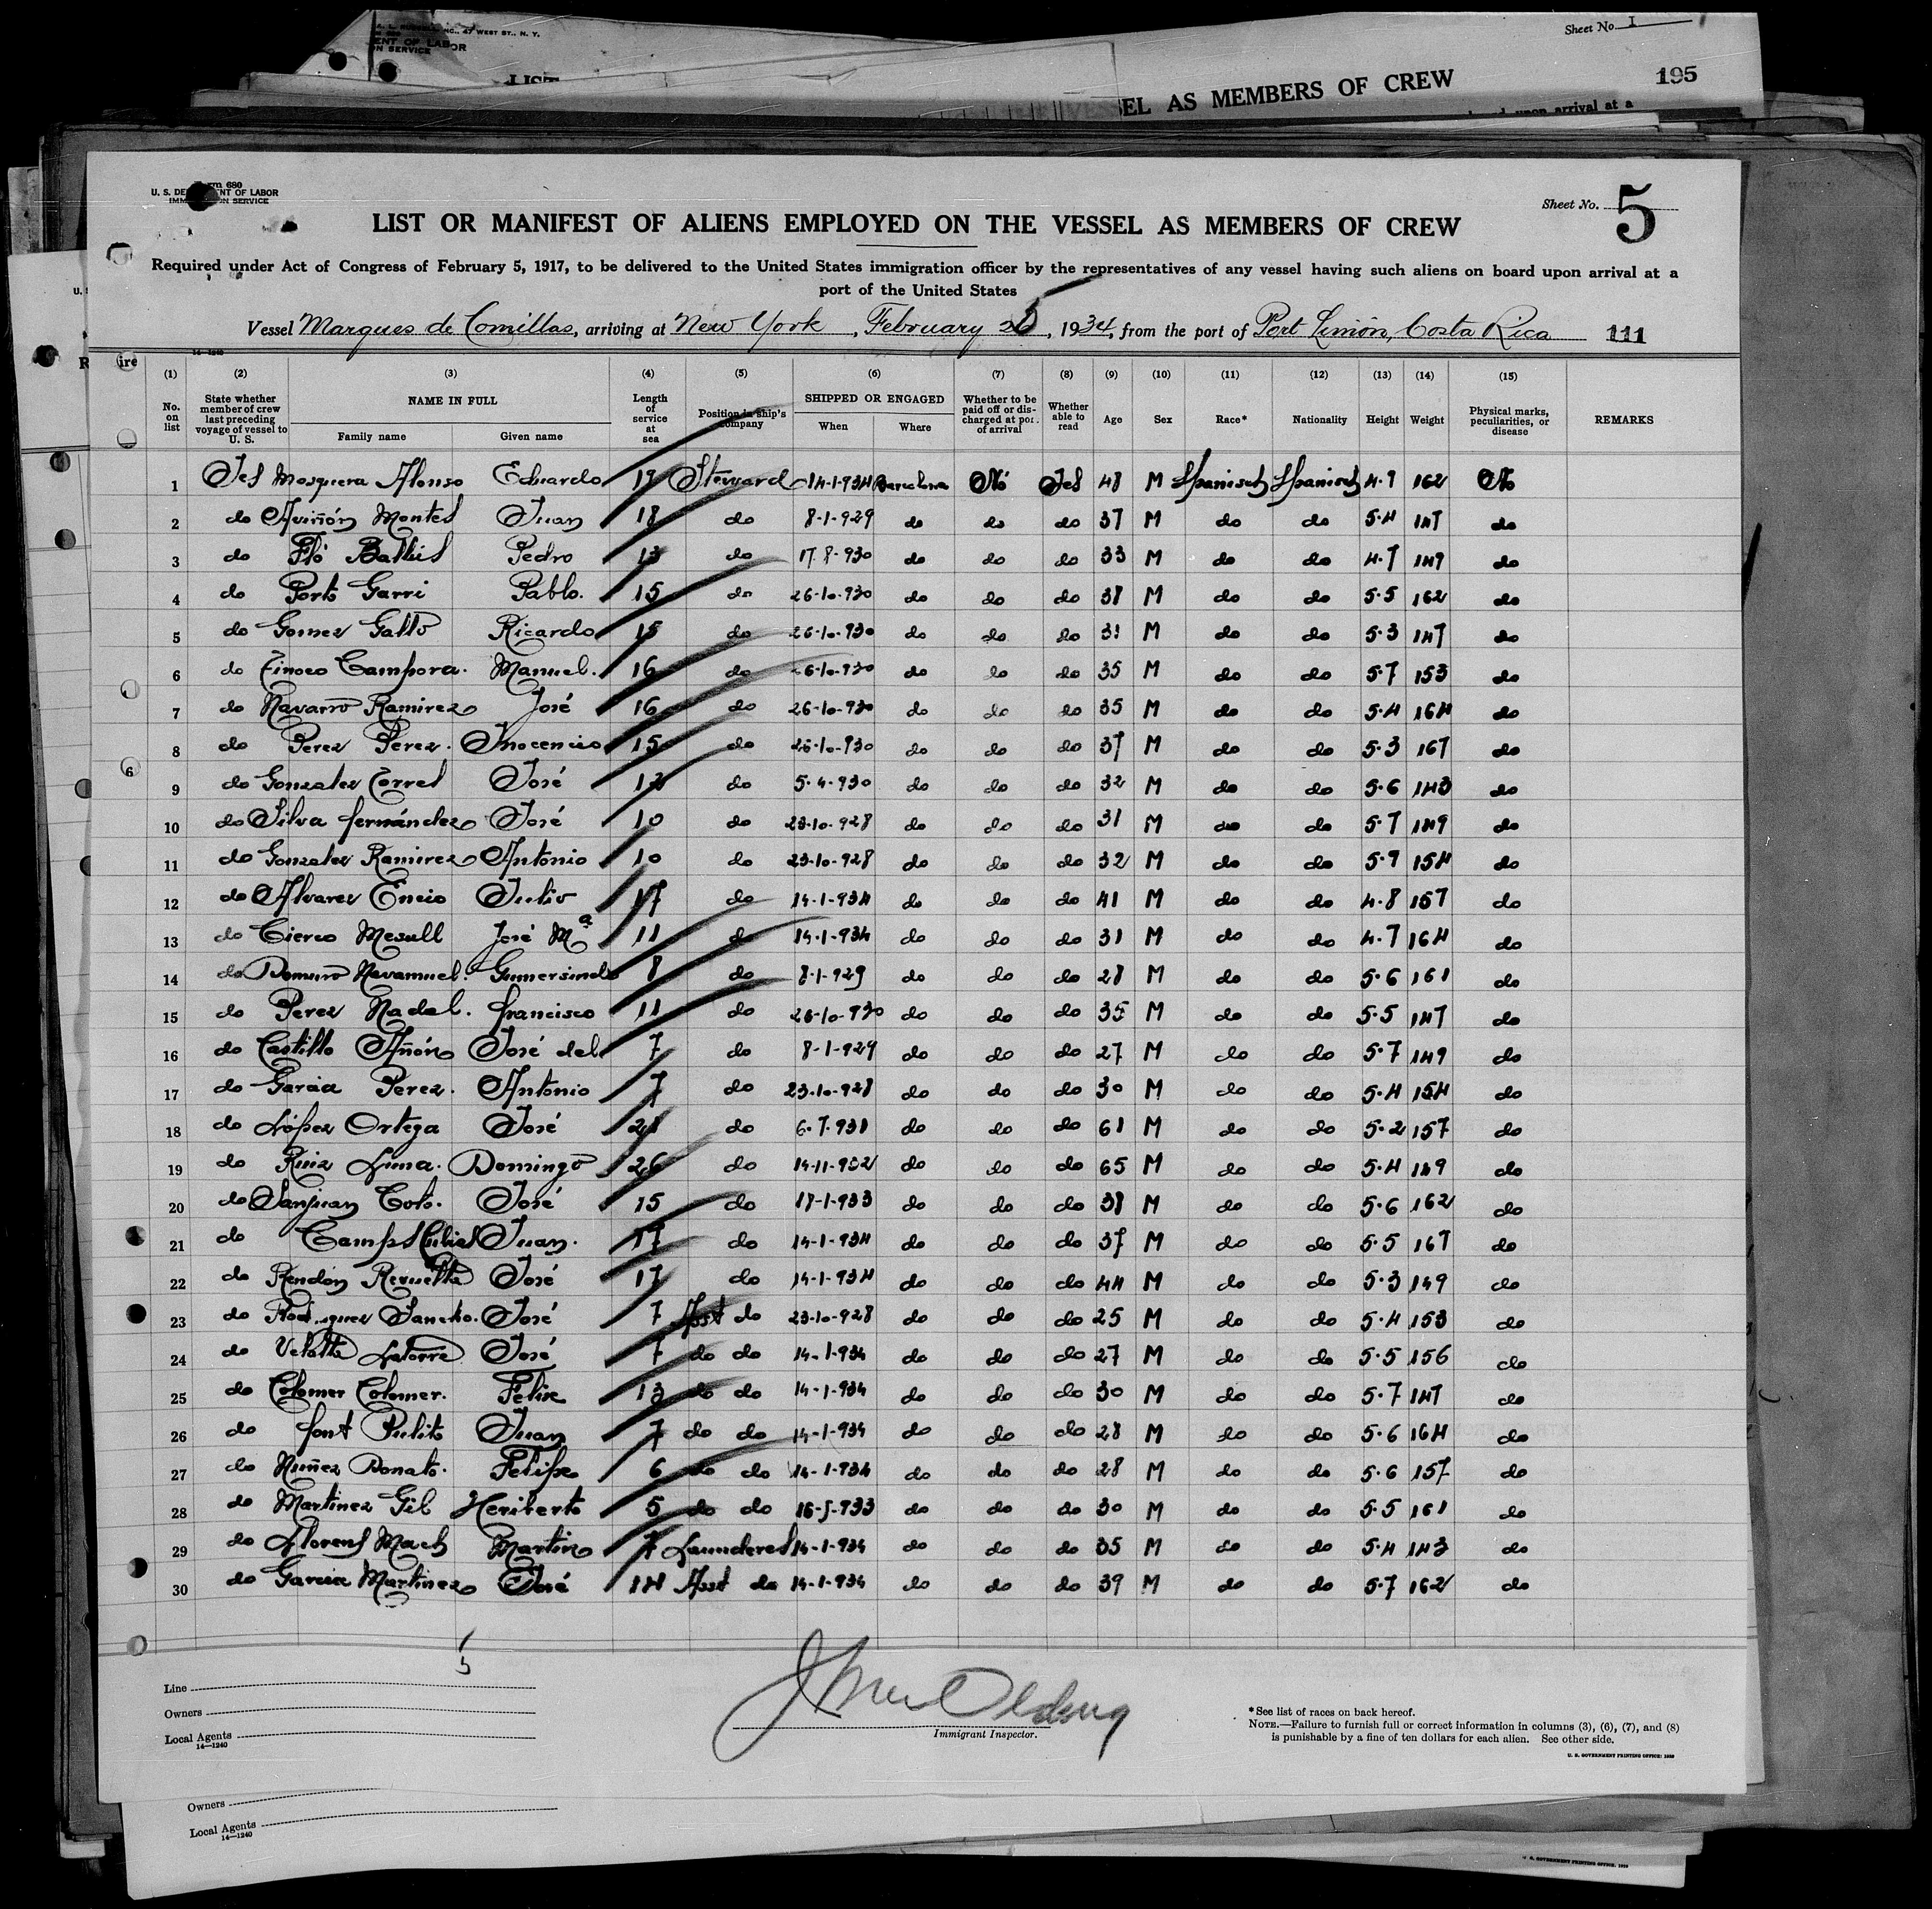 A. L. RUSSELL, INC., 47 WEST ST., N. Y.
ENT OF LABOR
N SERVICE
OR
LIST
Sheet No. 1
VESSEL AS MEMBERS OF CREW
195
upon arrival at a
Form 680
U. S. DEPARTMENT OF LABOR
IMMIGRATION SERVICE
Sheet No. 5
LIST OR MANIFEST OF ALIENS EMPLOYED ON THE VESSEL AS MEMBERS OF CREW
Required under Act of Congress of February 5, 1917, to be delivered to the United States immigration officer by the representatives of any vessel having such aliens on board upon arrival at a
port of the United States
Vessel Marques de Comillas, arriving at New York, February 25, 1934, from the port of Port Limón, Costa Rica 111
14-1240
(1) (2) (3) (4) (5) (6) (7) (8) (9) (10) (11) (12) (13) (14) (15)
No. on list State whether member of crew last preceding voyage of vessel to U. S. NAME IN FULL Family name Given name Length of service at sea Position in ship's company SHIPPED OR ENGAGED When Where Whether to be paid off or discharged at port of arrival Whether able to read Age Sex Race* Nationality Height Weight Physical marks, peculiarities, or disease REMARKS
1 Yes Mosquera Alonso Eduardo 19 Steward 14-1-934 Barcelona No Yes 48 M Spanisch Spanisch 4.9 162 No
2 do Aviñón Montes Juan 18 do 8-1-929 do do do 37 M do do 5.4 147 do
3 do Fló Pedro 13 do 17-8-930 do do do 33 M do do 4.7 149 do
4 do Porto Garri Pablo. 15 do 26-10-930 do do do 38 M do do 5.5 162 do
5 do Gomez Gallo Ricardo 15 do 26-10-930 do do do 31 M do do 5.3 147 do
6 do Tinoco Campora. Manuel. 16 do 26-10-930 do do do 35 M do do 5.7 153 do
7 do Navarro Ramirez José 16 do 26-10-930 do do do 35 M do do 5.4 164 do
8 do Perez Perez. Inocencio 15 do 26-10-930 do do do 37 M do do 5.3 167 do
9 do Gonzalez Torres José 12 do 5-4-930 do do do 32 M do do 5.6 143 do
10 do Silva fernández José 10 do 23-10-928 do do do 31 M do do 5.7 149 do
11 do Gonzalez Ramirez Antonio 10 do 23-10-928 do do do 32 M do do 5.9 154 do
12 do Alvarez Encio Julio 17 do 14-1-934 do do do 41 M do do 4.8 157 do
13 do Cierco Mesull José Mª 11 do 14-1-934 do do do 31 M do do 4.7 164 do
14 do Navamuel. Gumersindo 8 do 8-1-929 do do do 28 M do do 5.6 161 do
15 do Perez Nadal. francisco 11 do 26-10-930 do do do 35 M do do 5.5 147 do
16 do Castillo Añón José del 7 do 8-1-929 do do do 27 M do do 5.7 149 do
17 do Garcia Perez. Antonio 7 do 23-10-928 do do do 30 M do do 5.4 154 do
18 do López Ortega José 28 do 6-7-931 do do do 61 M do do 5.2 157 do
19 do Ruiz Luna. Domingo 26 do 14-11-932 do do do 65 M do do 5.4 149 do
20 do Sanjuan Coto. José 15 do 18-1-933 do do do 38 M do do 5.6 162 do
21 do Camps Juan. 17 do 14-1-934 do do do 37 M do do 5.5 167 do
22 do Rendón Revuelta José 17 do 14-1-934 do do do 44 M do do 5.3 149 do
23 do Rodriguez Sancho. José 7 Asst do 23-10-928 do do do 25 M do do 5.4 153 do
24 do Velatta Latorre José 7 do do 14-1-934 do do do 27 M do do 5.5 156 do
25 do Colomer Colomer. Felix 13 do do 14-1-934 do do do 30 M do do 5.7 147 do
26 do font Pulito Juan 7 do do 14-1-934 do do do 28 M do do 5.6 164 do
27 do Nuñez Donato. Felipe 6 do do 14-1-934 do do do 28 M do do 5.6 157 do
28 do Martinez Gil Heriberto 5 do do 16-5-933 do do do 30 M do do 5.5 161 do
29 do Llorens Mach Martin 7 Launderes 14-1-934 do do do 35 M do do 5.4 143 do
30 do Garcia Martinez José 14 Asst do 14-1-934 do do do 39 M do do 5.7 162 do
Line
Owners
Local Agents
14—1240
Immigrant Inspector.
*See list of races on back hereof.
NOTE.—Failure to furnish full or correct information in columns (3), (6), (7), and (8)
is punishable by a fine of ten dollars for each alien. See other side.
U. S. GOVERNMENT PRINTING OFFICE: 1929
Owners
Local Agents
14—1240